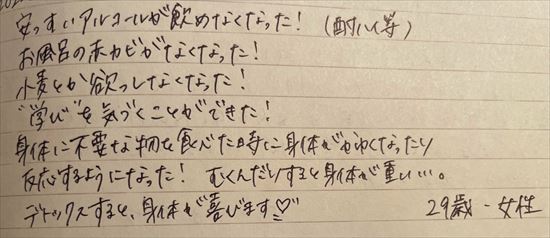 安っすいアルコールが飲めなくなった！（酎ハイ等）
お風呂の赤カビがなくなった！
小麦とか欲っしなくなった！
"学び"を気づくことができた！
身体に不要な物を食べた時に身体がかゆくなったり
反応するようになった！ むくんだりすると身体が重い…。
デトックスすると、身体が"喜びます♡" 29歳－女性